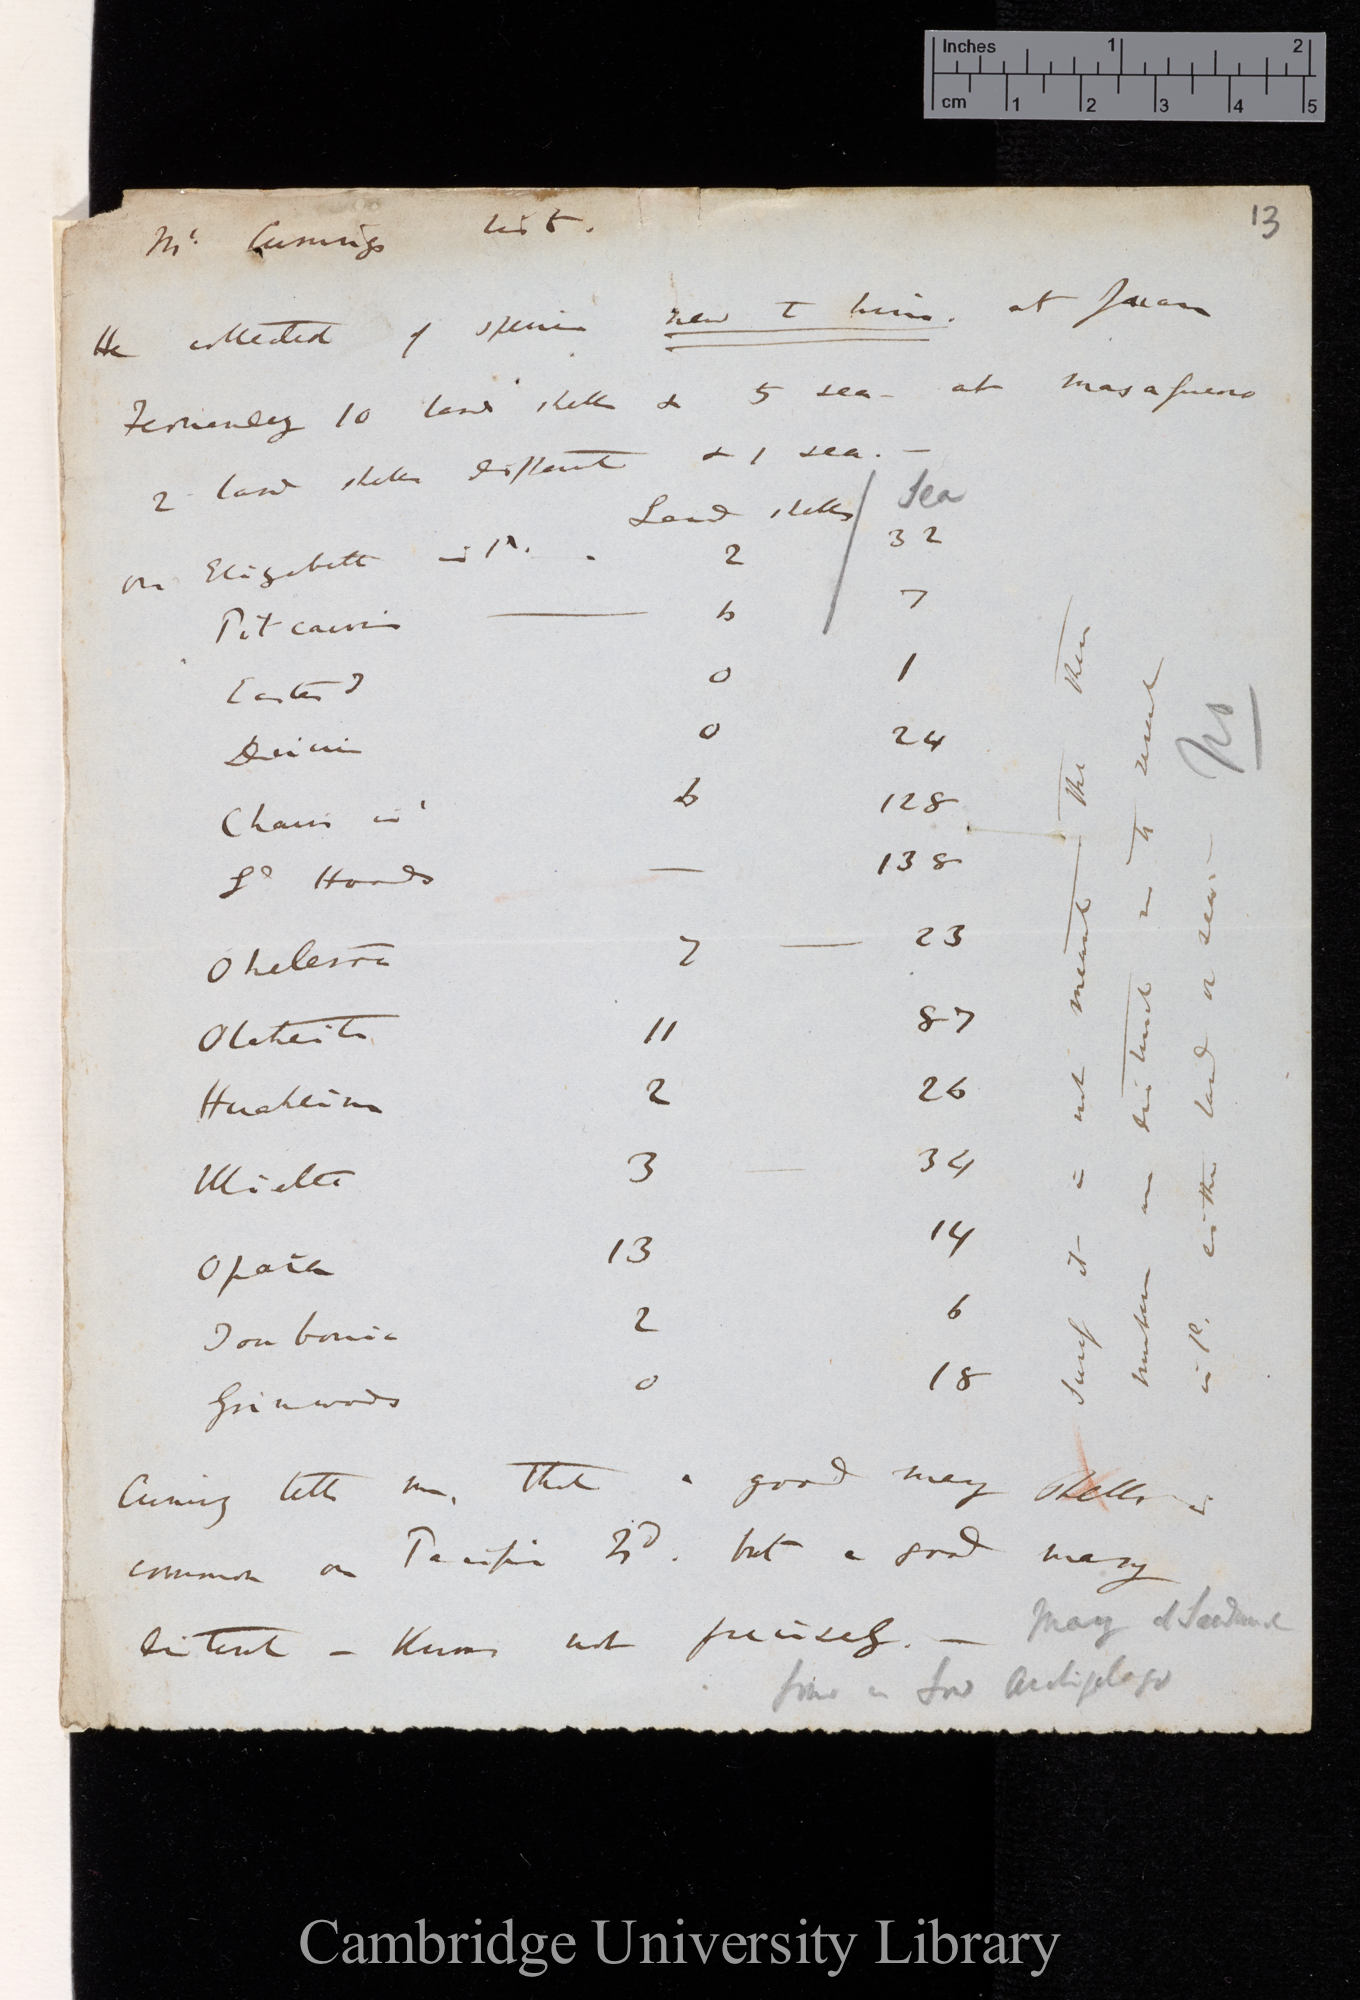 Inches 1 2
cm 1 2 3 4 5
13
Mr Cumings list.
He collected of species new to him. at Juan
Fernandez 10 land shells & 5 sea - at Masafuero
2 land shells different & 1 sea. —
Land shells / Sea
on Elizabeth isld. 2 32
Pitcairn — 6 7
Easter 0 1
Ducies 0 24
Chain isd 6 128
Ld Hoods — 138
Oheleroa 7 — 23
Otaheite 11 87
Huaheina 2 26
Uliatea 3 — 34
Opara 13 14
Toubouia 2 6
Grimwoods 0 18
Surely it is not meant the these
numbers are distinct in to several
isld. either land or sea. —
No
Cuming tells me, that a good many shells is
common on Pacific Isd. but a good many
distinct – knows not precisely. —
Many at Sandwich
some in Low Archipelago
Cambridge University Library